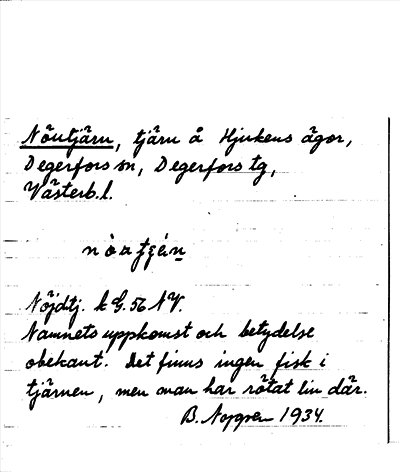 Nöutjärn, tjärn å Hjukens ägor,
Degerfors sn, Degerfors tg,
Västerb. l.
Nöjdtj. k G. 56 NV.
Namnets uppkomst och betydelse
obekant. Det finns ingen fisk i
tjärnen, men man har rötat lin där.
B. 1934.